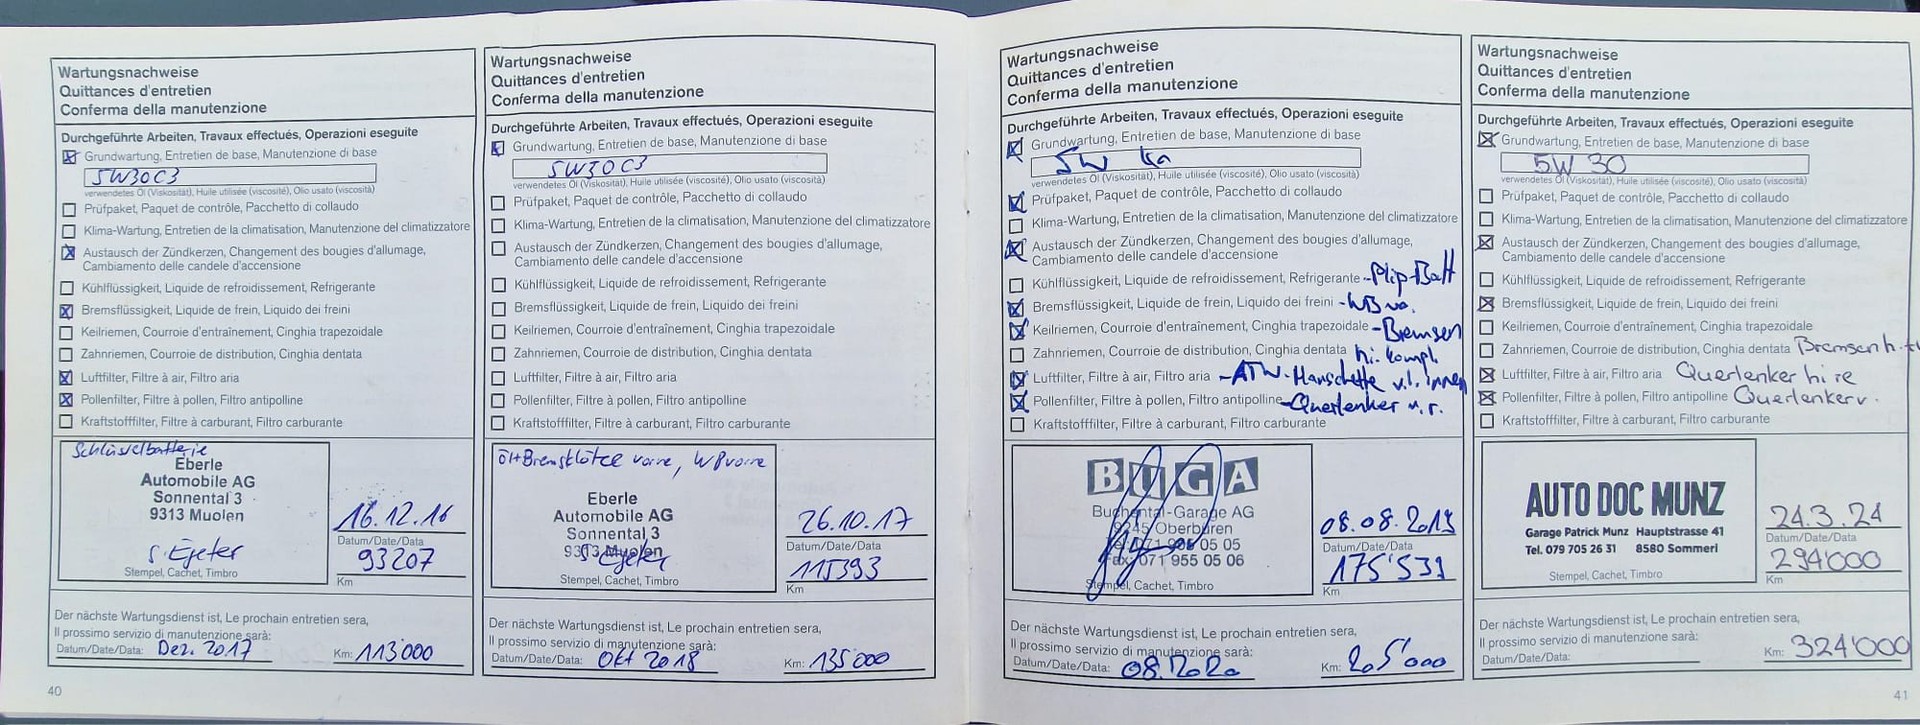 Wartungsnachweise
Quittances d'entretien
Conferma della manutenzione
Durchgeführte Arbeiten, Travaux effectués, Operazioni eseguite
Grundwartung, Entretien de base, Manutenzione di base
5W30C3
verwendetes Öl (Viskosität), Huile utilisée (viscosité), Olio usato (viscosità)
Prüfpaket, Paquet de contrôle, Pacchetto di collaudo
Klima-Wartung, Entretien de la climatisation, Manutenzione del climatizzatore
Austausch der Zündkerzen, Changement des bougies d'allumage,
Cambiamento delle candele d'accensione
Kühlflüssigkeit, Liquide de refroidissement, Refrigerante
Bremsflüssigkeit, Liquide de frein, Liquido dei freini
Keilriemen, Courroie d'entraînement, Cinghia trapezoidale
Zahnriemen, Courroie de distribution, Cinghia dentata
Luftfilter, Filtre à air, Filtro aria
Pollenfilter, Filtre à pollen, Filtro antipolline
Kraftstofffilter, Filtre à carburant, Filtro carburante
Schlüsselbatterie
Eberle
Automobile AG
Sonnental 3
9313 Muolen
Stempel, Cachet, Timbro
16.12.16
Datum/Date/Data
93207
Km
Der nächste Wartungsdienst ist, Le prochain entretien sera,
Il prossimo servizio di manutenzione sarà:
Datum/Date/Data: Dez. 2017 Km: 113'000
40
Wartungsnachweise
Quittances d'entretien
Conferma della manutenzione
Durchgeführte Arbeiten, Travaux effectués, Operazioni eseguite
Grundwartung, Entretien de base, Manutenzione di base
5W30C3
verwendetes Öl (Viskosität), Huile utilisée (viscosité), Olio usato (viscosità)
Prüfpaket, Paquet de contrôle, Pacchetto di collaudo
Klima-Wartung, Entretien de la climatisation, Manutenzione del climatizzatore
Austausch der Zündkerzen, Changement des bougies d'allumage,
Cambiamento delle candele d'accensione
Kühlflüssigkeit, Liquide de refroidissement, Refrigerante
Bremsflüssigkeit, Liquide de frein, Liquido dei freini
Keilriemen, Courroie d'entraînement, Cinghia trapezoidale
Zahnriemen, Courroie de distribution, Cinghia dentata
Luftfilter, Filtre à air, Filtro aria
Pollenfilter, Filtre à pollen, Filtro antipolline
Kraftstofffilter, Filtre à carburant, Filtro carburante
Öl+Bremsklötze vorne, WP vorne
Eberle
Automobile AG
Sonnental 3
9313 Muolen
Stempel, Cachet, Timbro
26.10.17
Datum/Date/Data
115393
Km
Der nächste Wartungsdienst ist, Le prochain entretien sera,
Il prossimo servizio di manutenzione sarà:
Datum/Date/Data: Okt 2018 Km: 135'000
Wartungsnachweise
Quittances d'entretien
Conferma della manutenzione
Durchgeführte Arbeiten, Travaux effectués, Operazioni eseguite
Grundwartung, Entretien de base, Manutenzione di base
5W
verwendetes Öl (Viskosität), Huile utilisée (viscosité), Olio usato (viscosità)
Prüfpaket, Paquet de contrôle, Pacchetto di collaudo
Klima-Wartung, Entretien de la climatisation, Manutenzione del climatizzatore
Austausch der Zündkerzen, Changement des bougies d'allumage,
Cambiamento delle candele d'accensione
Kühlflüssigkeit, Liquide de refroidissement, Refrigerante - Plip-Batt
Bremsflüssigkeit, Liquide de frein, Liquido dei freini
Keilriemen, Courroie d'entraînement, Cinghia trapezoidale - Bremsen
Zahnriemen, Courroie de distribution, Cinghia dentata hi. kompl.
Luftfilter, Filtre à air, Filtro aria - ATW-Manschette v.l. innen
Pollenfilter, Filtre à pollen, Filtro antipolline - Querlenker
Kraftstofffilter, Filtre à carburant, Filtro carburante
BUGA
Buchental-Garage AG
9245 Oberbüren
Tel. 071 955 05 05
Fax: 071 955 05 06
Stempel, Cachet, Timbro
08.08.2019
Datum/Date/Data
175'539
Km
Der nächste Wartungsdienst ist, Le prochain entretien sera,
Il prossimo servizio di manutenzione sarà:
Datum/Date/Data: 08.2020 Km: 205'000
Wartungsnachweise
Quittances d'entretien
Conferma della manutenzione
Durchgeführte Arbeiten, Travaux effectués, Operazioni eseguite
Grundwartung, Entretien de base, Manutenzione di base
5W 30
verwendetes Öl (Viskosität), Huile utilisée (viscosité), Olio usato (viscosità)
Prüfpaket, Paquet de contrôle, Pacchetto di collaudo
Klima-Wartung, Entretien de la climatisation, Manutenzione del climatizzatore
Austausch der Zündkerzen, Changement des bougies d'allumage,
Cambiamento delle candele d'accensione
Kühlflüssigkeit, Liquide de refroidissement, Refrigerante
Bremsflüssigkeit, Liquide de frein, Liquido dei freini
Keilriemen, Courroie d'entraînement, Cinghia trapezoidale
Zahnriemen, Courroie de distribution, Cinghia dentata Bremsen
Luftfilter, Filtre à air, Filtro aria Querlenker hi re
Pollenfilter, Filtre à pollen, Filtro antipolline Querlenker v.
Kraftstofffilter, Filtre à carburant, Filtro carburante
AUTO DOC MUNZ
Garage Patrick Munz Hauptstrasse 41
Tel. 079 705 26 31 8580 Sommeri
Stempel, Cachet, Timbro
24.3.24
Datum/Date/Data
294'000
Km
Der nächste Wartungsdienst ist, Le prochain entretien sera,
Il prossimo servizio di manutenzione sarà:
Datum/Date/Data: Km: 324'000
41